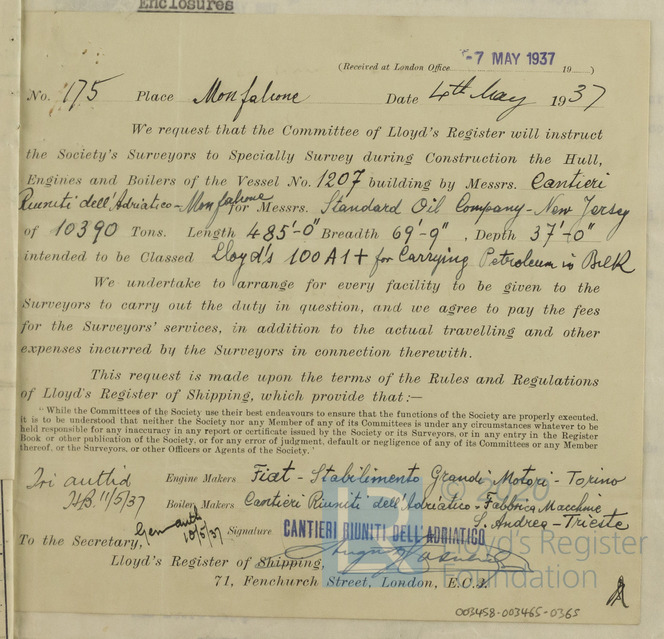 Enclosures
(Received at London Office -7 MAY 1937 19 )
No. 175 Place Monfalcone Date 4th May 1937
We request that the Committee of Lloyd's Register will instruct
the Society's Surveyors to Specially Survey during Construction the Hull,
Engines and Boilers of the Vessel No. 1207 building by Messrs. Cantieri
Riuniti dell'Adriatico - Monfalcone for Messrs. Standard Oil Company - New Jersey
of 10390 Tons. Length 485'-0" Breadth 69'-9", Depth 37'-0"
intended to be Classed Lloyd's 100A1+ for Carrying Petroleum in Bulk
We undertake to arrange for every facility to be given to the
Surveyors to carry out the duty in question, and we agree to pay the fees
for the Surveyors' services, in addition to the actual travelling and other
expenses incurred by the Surveyors in connection therewith.
This request is made upon the terms of the Rules and Regulations
of Lloyd's Register of Shipping, which provide that :—
"While the Committees of the Society use their best endeavours to ensure that the functions of the Society are properly executed,
it is to be understood that neither the Society nor any Member of any of its Committees is under any circumstances whatever to be
held responsible for any inaccuracy in any report or certificate issued by the Society or its Surveyors, or in any entry in the Register
Book or other publication of the Society, or for any error of judgment, default or negligence of any of its Committees or any Member
thereof, or the Surveyors, or other Officers or Agents of the Society."
Tri authd Engine Makers Fiat - Stabilimento Grandi Motori - Torino
11/5/37 Boiler Makers Cantieri Riuniti dell'Adriatico - Fabbrica Macchine
S. Andrea - Trieste
Gen authd 10/5/37 Signature CANTIERI RIUNITI DELL'ADRIATICO
To the Secretary,
Lloyd's Register of Shipping,
71, Fenchurch Street, London, E.C.3.
© 2020
Lloyd's Register
Foundation
003458-003465-0365